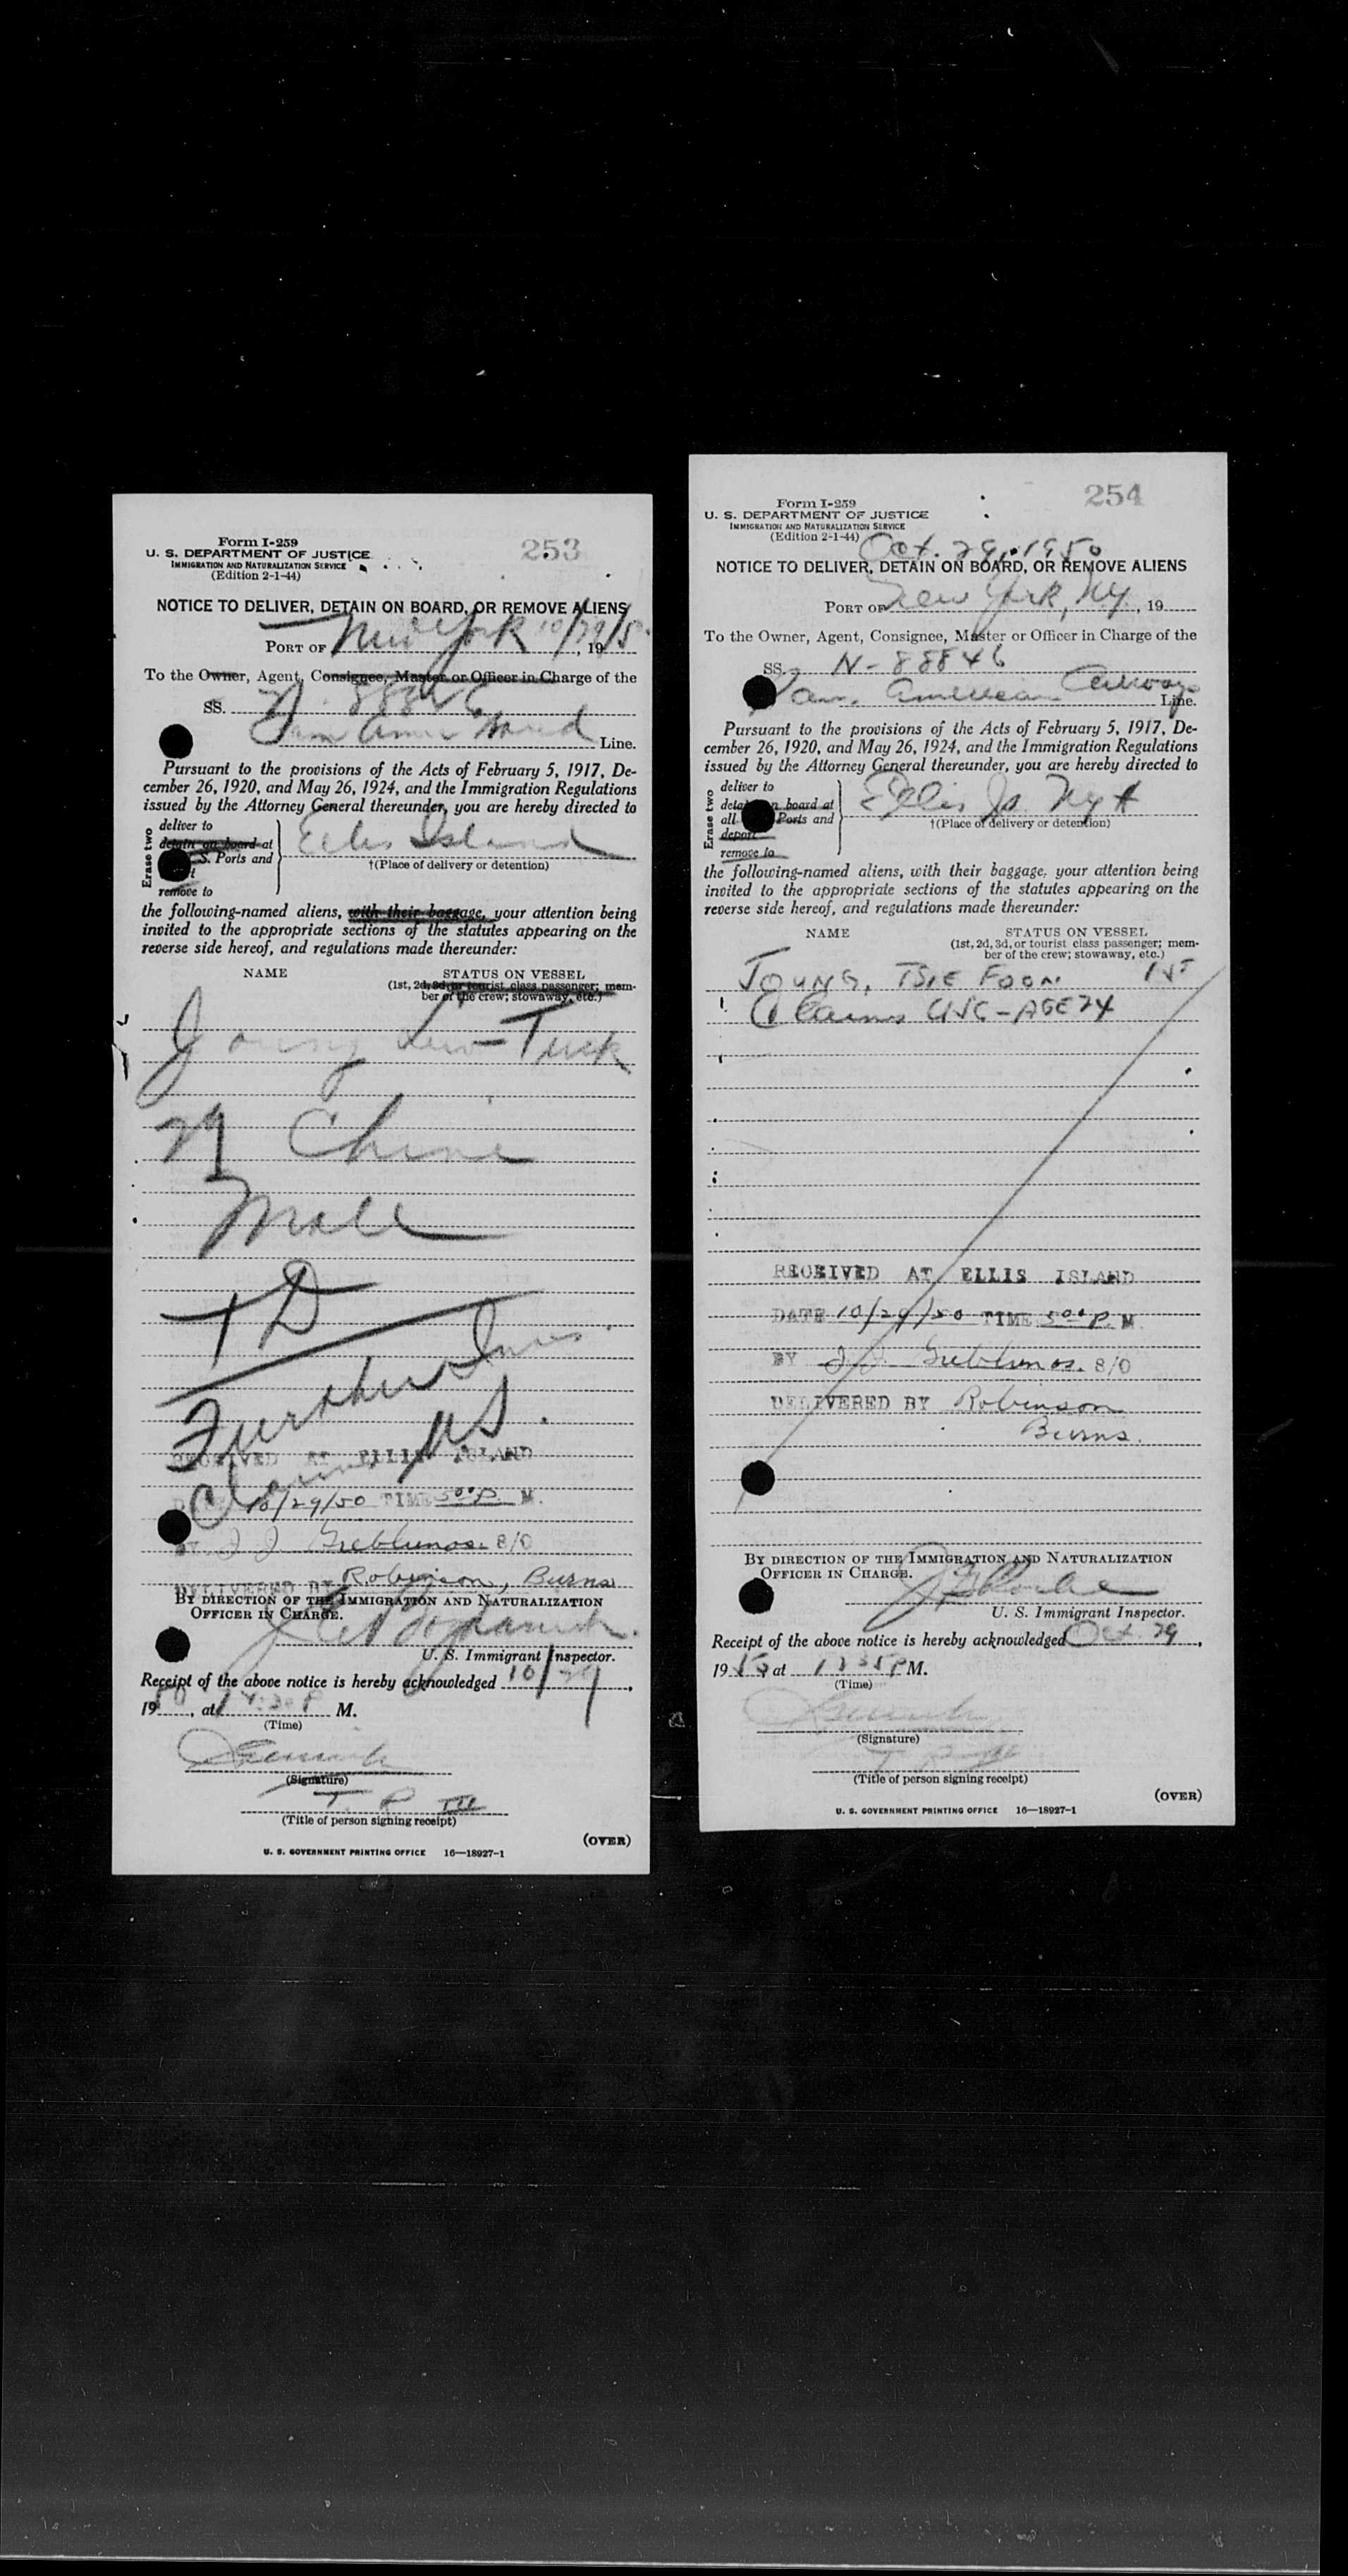 253
Form I-259
U. S. DEPARTMENT OF JUSTICE
IMMIGRATION AND NATURALIZATION SERVICE
(Edition 2-1-44)
NOTICE TO DELIVER, DETAIN ON BOARD, OR REMOVE ALIENS
PORT OF New York 10/29/5 , 19
To the Owner, Agent, Consignee, Master or Officer in Charge of the
SS. N. 88846
Line.
Pursuant to the provisions of the Acts of February 5, 1917, De-
cember 26, 1920, and May 26, 1924, and the Immigration Regulations
issued by the Attorney General thereunder, you are hereby directed to
Erase two
deliver to
detain on board at
S. Ports and
remove to
Ellis Island
†(Place of delivery or detention)
the following-named aliens, with their baggage, your attention being
invited to the appropriate sections of the statutes appearing on the
reverse side hereof, and regulations made thereunder:
NAME STATUS ON VESSEL
(1st, 2d, 3d, or tourist class passenger; mem-
ber of the crew; stowaway, etc.)
Tuck
29
Male
TD
Further
RECEIVED AT ELLIS ISLAND
10/29/50 TIME 5 00 P. M.
8/0
DELIVERED BY Robinson, Burns
BY DIRECTION OF THE IMMIGRATION AND NATURALIZATION
OFFICER IN CHARGE.
U. S. Immigrant Inspector.
Receipt of the above notice is hereby acknowledged 10/29,
19 50, at M.
(Time)
(Signature)
T. R.
(Title of person signing receipt)
(OVER)
U. S. GOVERNMENT PRINTING OFFICE 16—18927-1
254
Form I-259
U. S. DEPARTMENT OF JUSTICE
IMMIGRATION AND NATURALIZATION SERVICE
(Edition 2-1-44)
Oct. 29, 1950
NOTICE TO DELIVER, DETAIN ON BOARD, OR REMOVE ALIENS
PORT OF New York, NY. , 19
To the Owner, Agent, Consignee, Master or Officer in Charge of the
SS. N-88846
Pan American Airways Line.
Pursuant to the provisions of the Acts of February 5, 1917, De-
cember 26, 1920, and May 26, 1924, and the Immigration Regulations
issued by the Attorney General thereunder, you are hereby directed to
Erase two
deliver to
detain on board at
all Ports and
deport
remove to
Ellis Is NYH
†(Place of delivery or detention)
the following-named aliens, with their baggage, your attention being
invited to the appropriate sections of the statutes appearing on the
reverse side hereof, and regulations made thereunder:
NAME STATUS ON VESSEL
(1st, 2d, 3d, or tourist class passenger; mem-
ber of the crew; stowaway, etc.)
FOON 1ST
Claims USC - AGE 24
RECEIVED AT ELLIS ISLAND
DATE 10/29/50 TIME 5 00 P. M
BY 8/0
DELIVERED BY Robinson
Burns.
BY DIRECTION OF THE IMMIGRATION AND NATURALIZATION
OFFICER IN CHARGE.
U. S. Immigrant Inspector.
Receipt of the above notice is hereby acknowledged Oct. 29,
19 50 at P M.
(Time)
(Signature)
(Title of person signing receipt)
(OVER)
U. S. GOVERNMENT PRINTING OFFICE 16—18927-1